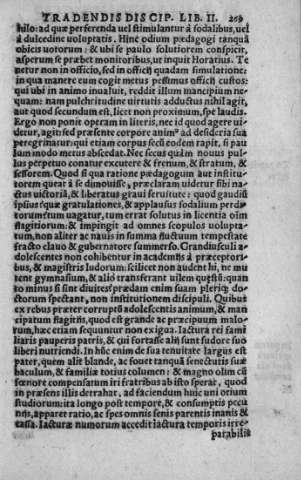 TRADENDIS DISCIP. LIB. II. 269
hilo: ad quæ perferenda uel stimulantur à sodalibus, uel
à dulcedine uoluptatis. Hinc odium pædagogi tanquā
obicis uotorum: & ubi se paulo solutiorem conspicit,
asperum se præbet monitoribus, ut inquit Horatius. Te
netur non in officio, sed in officij quadam simulatione:
in qua manere eum cogit metus pessimus officij custos:
qui ubi in animo inualuit, reddit illum mancipium ne-
quam: nam pulchritudine uirtutis adductus nihil agit,
aut quod secundum est, licet non proximum, spe laudis.
Ergo non ponit operam in literis, nec id quod agere ui-
detur, agit: sed præsente corpore animus ad desideria sua
peregrinatur: qui etiam corpus secū eodem rapit, si pau
lum modo metus abscedat. Nec secus quàm nouus pul-
lus perpetuo conatur excutere & frenum, & stratum, &
sessorem. Quod si qua ratione pædagogum aut institu-
torem queat à se dimouisse, præclaram uidetur sibi na-
ctus uictoriā, & liberatus graui seruitute: quod gaudiū
ipsius sequuntur gratulationes, & applausus sodalium perdi-
torum: tum uagatur, tum errat solutus in licentia oīm
flagitiorum: & impingit ad omnes scopulos uolupta-
tum, non aliter ac nauis in summa fluctuum tempestate
fracto clauo & gubernatore summerso. Grandiusculi a-
dolescentes non cohibentur in academijs à præceptori-
bus, & magistris ludorum: scilicet non audent hi, ne mu
tent gymnasium, & aliò transferant uilem quæstū: quan
to minus si sint diuites: prædam enim suam pleriq; do-
ctorum spectant, non institutionem discipuli. Quibus
ex rebus præter corruptū adolescentis animum, & man
cipatum flagitijs, quod est grande ac præcipuum malo-
rum, hæc etiam sequuntur non exigua. Iactura rei fami
liaris pauperis patris, & qui fortasse alij sunt sudore suo
liberi nutriendi. In huc enim de sua tenuitate largus est
pater, quem alit blande, ac fouet tanquā senectutis suæ
baculum, & familiæ totius columen: & magno olim cū
fœnore compensatum iri fratribus ab isto sperat, quod
in præsens illis detrahat, ad faciendum huic uni otium
studiorum: ita longo post tempore, & consumptis pecu
nijs, apparet ratio, ac spes omnis senis parentis inanis &
cassa. Iacturæ numorum accedit iactura temporis irre-
parabilis